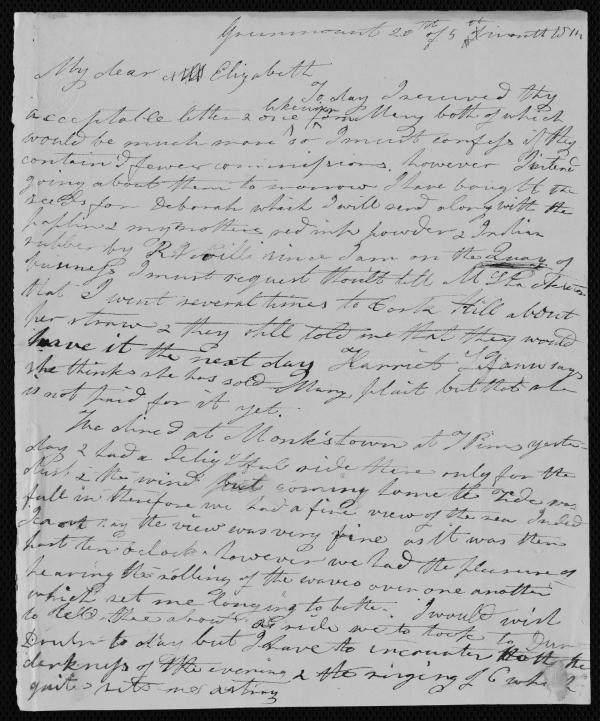 Greenmount 20th of 5th month 18
My dear Elizabeth
To day I received thy
acceptable letter & one likewise from Mary both of which
would be much more so I must confess if they
contain'd fewer commissions, however I intend
going about them to morrow I have bought the
seeds for Deborah which I will send along with the
poplin & my mothers red ink powder & Indian
rubber by R since I am on the Quay of
business I must request thoult tell M
that I went several times to Cork Hill about
her straw & they still told me that they would
have it the next day Harriet says
she thinks she has sold Mary plait but that
is not paid for it yet.
We dined at Monkstown at J Pims yester-
day & had a delightful ride there only for the
dust & the wind but coming home the tide was
full in therefore we had a fine view of the sea Indeed
I cant say the view was very fine as it was then
past ten oclock, however we had the pleasure of
hearing the rolling of the waves over one another
which set me longing to bathe. I would wish
to tell thee about a ride we took to Dun-
drum to day but I have to encounter both the
darkness of the evening & the ringing of 6 which
quite sets me